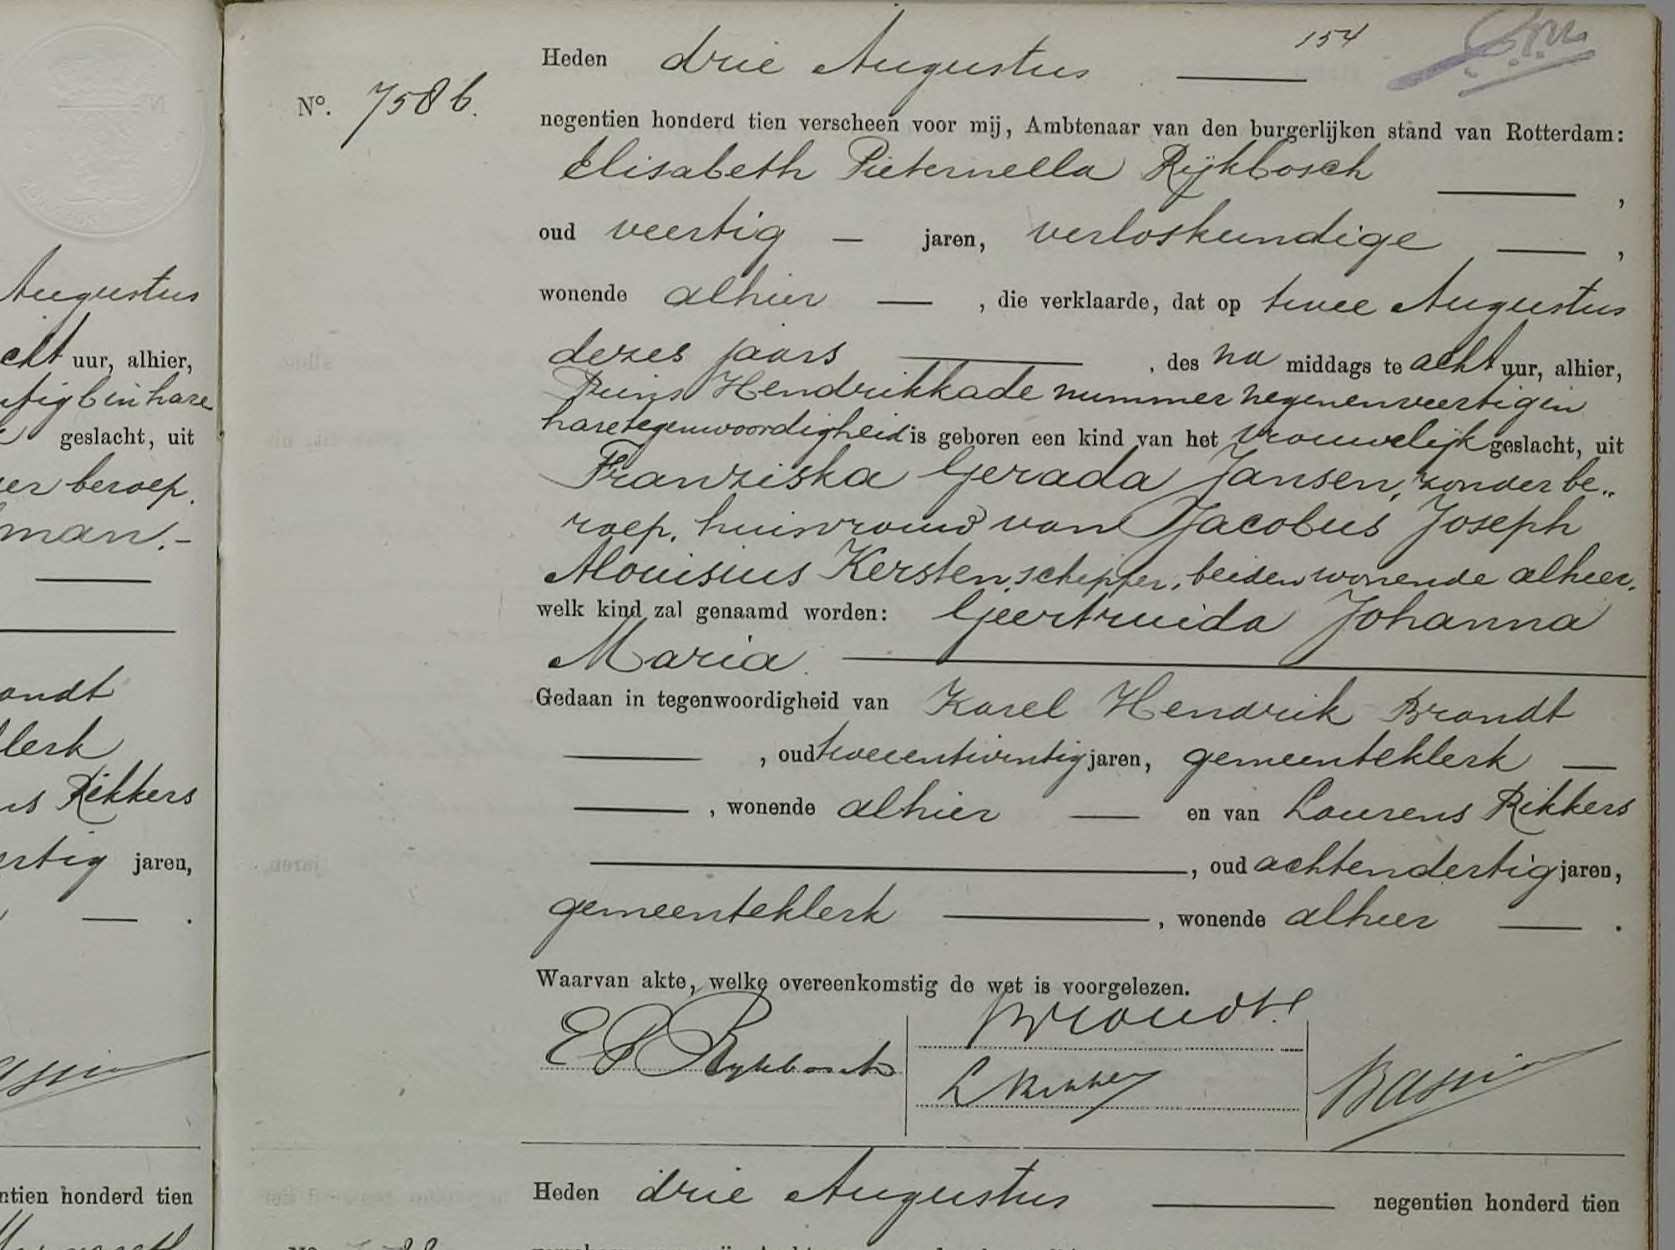 154
Heden drie Augustus
Nº. 7586.
negentien honderd tien verscheen voor mij, Ambtenaar van den burgerlijken stand van Rotterdam:
Elisabeth Pieternella Rijkbosch ,
oud veertig — jaren, verloskundige ,
wonende alhier — , die verklaarde, dat op twee Augustus
dezes jaars , des na middags te acht uur, alhier,
Prins Hendrikkade nummer negenenveertig in
hare tegenwoordigheid is geboren een kind van het vrouwelijk geslacht, uit
Franziska Gerada Jansen, zonder be„
roep, huisvrouw van Jacobus Joseph
Alouisius Kersten, schipper, beiden wonende alhier,
welk kind zal genaamd worden: Geertruida Johanna
Maria
Gedaan in tegenwoordigheid van Karel Hendrik Brandt
, oud tweeentwintig jaren, gemeenteklerk —
, wonende alhier — en van Lourens Rikkers
, oud achtendertig jaren,
gemeenteklerk , wonende alhier — .
Waarvan akte, welke overeenkomstig de wet is voorgelezen.
E P Rykbosch
Brandt
L Rikkers
Heden drie Augustus negentien honderd tien
Augustus
cht uur, alhier,
tig b in hare
geslacht, uit
er beroep.
man.–
andt
lerk
us Rikkers
ertig jaren,
— .
ntien honderd tien